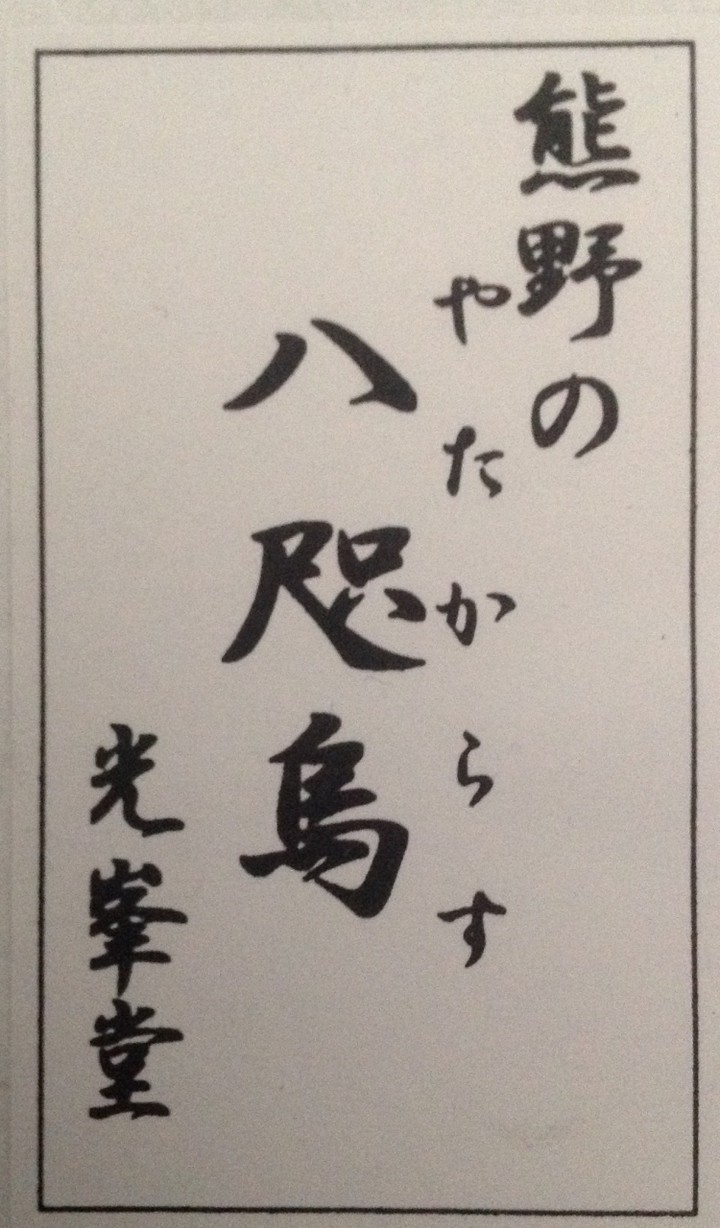 熊野の
やたからす
八咫烏
光峯堂